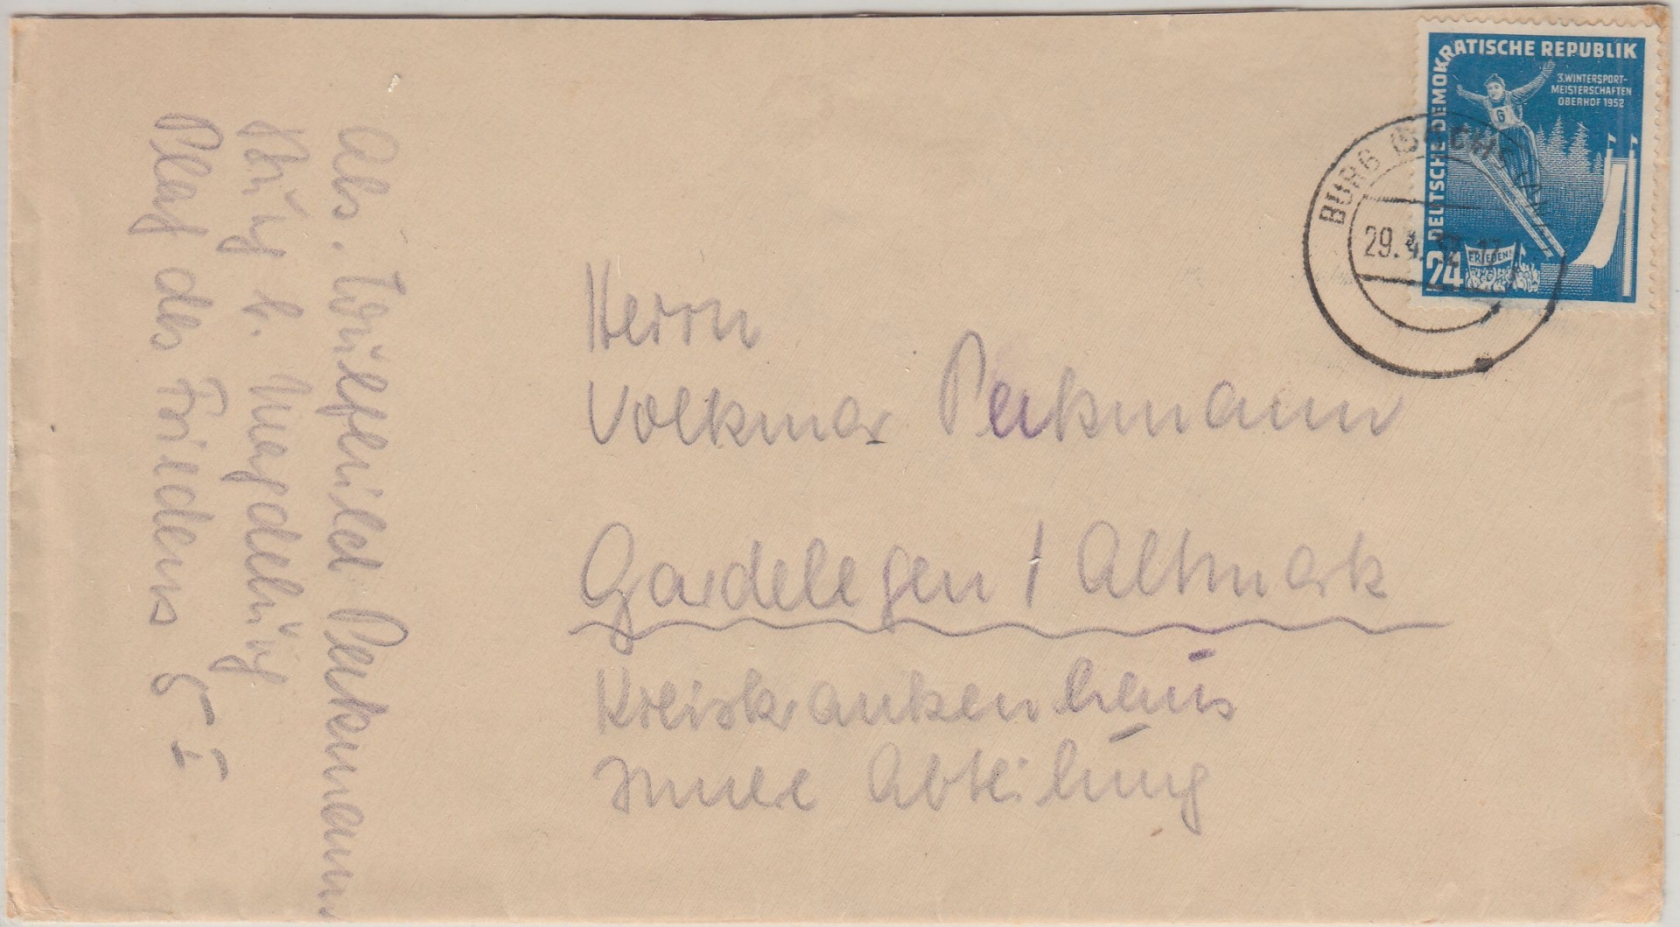 DEUTSCHE DEMOKRATISCHE REPUBLIK
3.WINTERSPORT-
MEISTERSCHAFTEN
OBERHOF 1952
6
FRIEDEN!
24
BURG
29.4.52
Herrn
Volkmar Perkmann
Gardelegen / Altmark
Kreiskrankenhaus
Innere Abteilung
Abs. Wulfhild Perkmann
Burg b. Magdeburg
Platz des Friedens 5 I